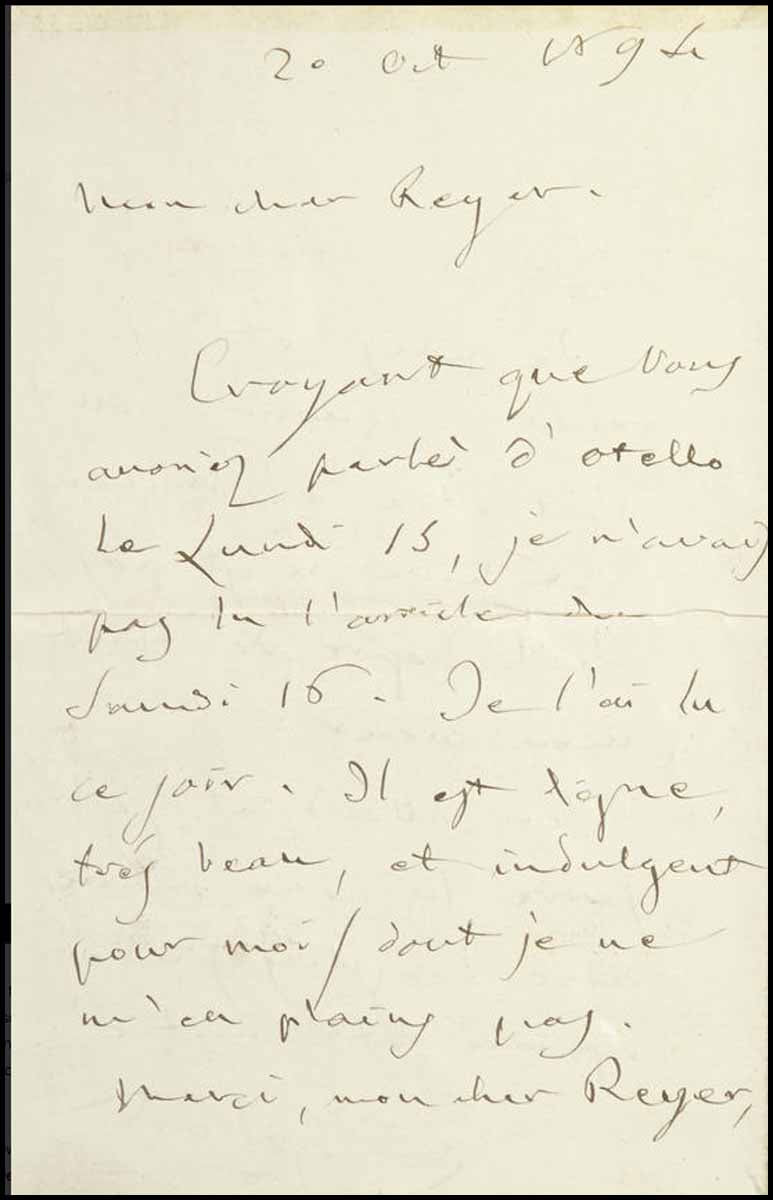 20 Oct 1894
Mon cher Reyer.
Croyant que vous
auriez parlé d'otello
le Lundi 15, je n'avais
pas lu l'article du
Samedi 16. Je l'ai lu
ce soir. Il est digne,
très beau, et indulgent
pour moi / dont je ne
m'en plains pas.
Merci, mon cher Reyer,